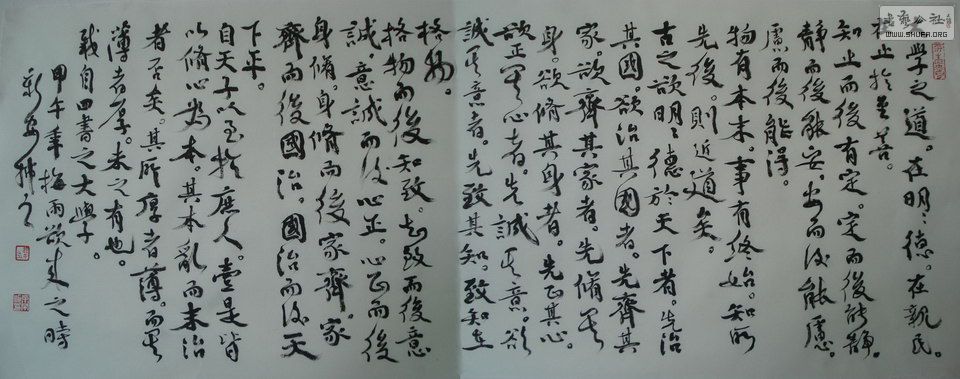 大学之道。在明明德。在親民。
在止於至善。
知止而後有定。定而後能静。
静而後能安。安而後能慮。
慮而後能得。
物有本末。事有終始。知所
先後。則近道矣。
古之欲明明德於天下者。先治
其國。欲治其國者。先齊其
家。欲齊其家者。先脩其
身。欲脩其身者。先正其心。
欲正其心者。先誠其意。欲
誠其意者。先致其知。致知在
格物。
格物而後知致。知致而後意
誠。意誠而後心正。心正而後
身脩。身脩而後家齊。家
齊而後國治。國治而後天
下平。
自天子以至於庶人。壹是皆
以脩心為本。其本亂而末治
者否矣。其所厚者薄。而其
薄者厚。未之有也。
載自四書之大學
甲午年梅雨欲来之時
書藝公社
WWW.SHUFA.ORG